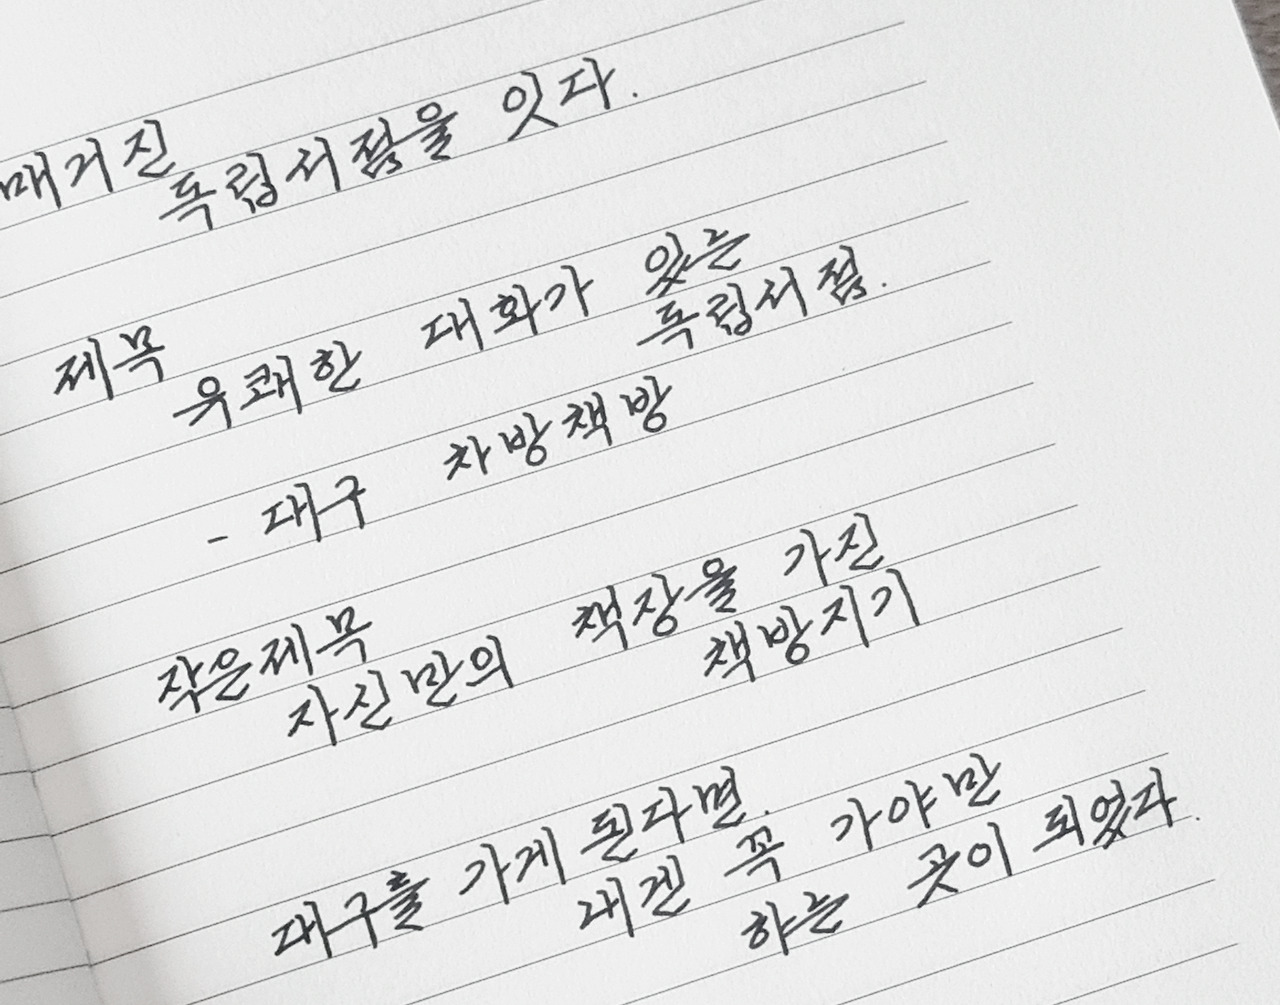 매거진
독립서점을 잇다.
제목
유쾌한 대화가 있는
독립서점.
- 대구 차방책방
작은제목
자신만의 책장을 가진
책방지기
대구를 가게 된다면.
내겐 꼭 가야만
하는 곳이 되었다.